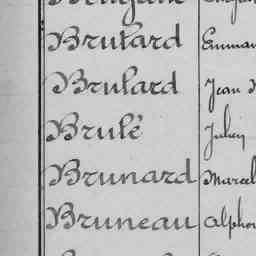 Brutard Emman
Brutard Jean
Brulé Julien
Brunard Marcel
Bruneau Alphon